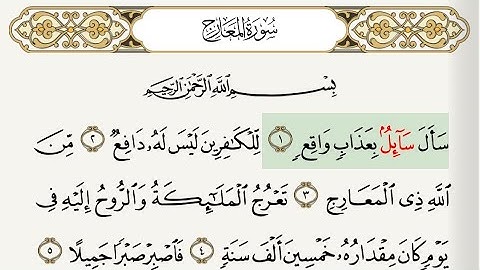 سُورَةُ الْمَعَارِجِ
بِسْمِ اللَّهِ الرَّحْمَٰنِ الرَّحِيمِ
سَأَلَ سَآئِلُۢ بِعَذَابٖ وَاقِعٖ ١ لِّلْكَٰفِرِينَ لَيْسَ لَهُۥ دَافِعٞ ٢ مِّنَ
اللَّهِ ذِي الْمَعَارِجِ ٣ تَعْرُجُ الْمَلَٰٓئِكَةُ وَالرُّوحُ إِلَيْهِ فِي
يَوْمٖ كَانَ مِقْدَارُهُۥ خَمْسِينَ أَلْفَ سَنَةٖ ٤ فَاصْبِرْ صَبْرٗا جَمِيلًا ٥